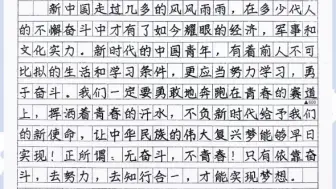 新中国走过几多的风风雨雨，在多少代人
的不懈奋斗中才有了如今耀眼的经济，军事和
文化实力。新时代的中国青年，有着前人不可
比拟的生活和学习条件，更应当努力学习，勇
于奋斗。我们一定要勇敢地奔跑在青春的赛道
上，挥洒着青春的汗水，不负新时代给予我们
的新使命，让中华民族的伟大复兴梦能够早日
实现！正所谓：无奋斗，不青春！只有依靠奋
斗，去努力，去知行合一，才能实现梦想。